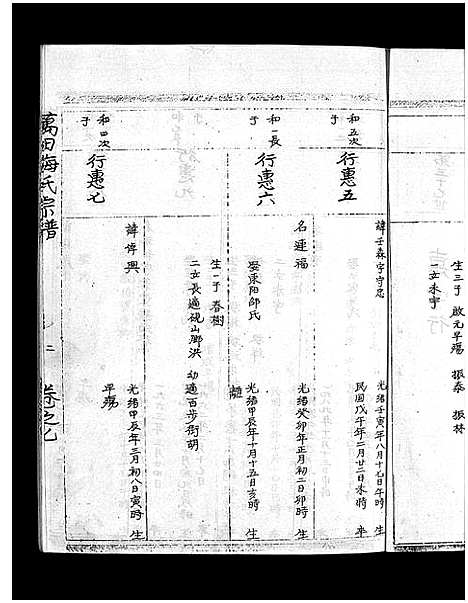 生三子 啟元早殤 振泰 振林
一女未字
和五次子
行惠五
諱壬森字守忠
光緒壬寅年八月十七日午時 生
民國戊午年二月廿二日未時 卒
和一長子
行惠六
名連福
光緒癸卯年正月初二日卯時 生
娶東阳邵氏
光緒甲辰年十月十五日亥時 生
生一子 春樹
二女長適硯山腳洪 幼適百步街胡
和四次子
行惠七
諱偉興
光緒甲辰年三月初八日寅時 生
早殤
萬田梅氏宗譜